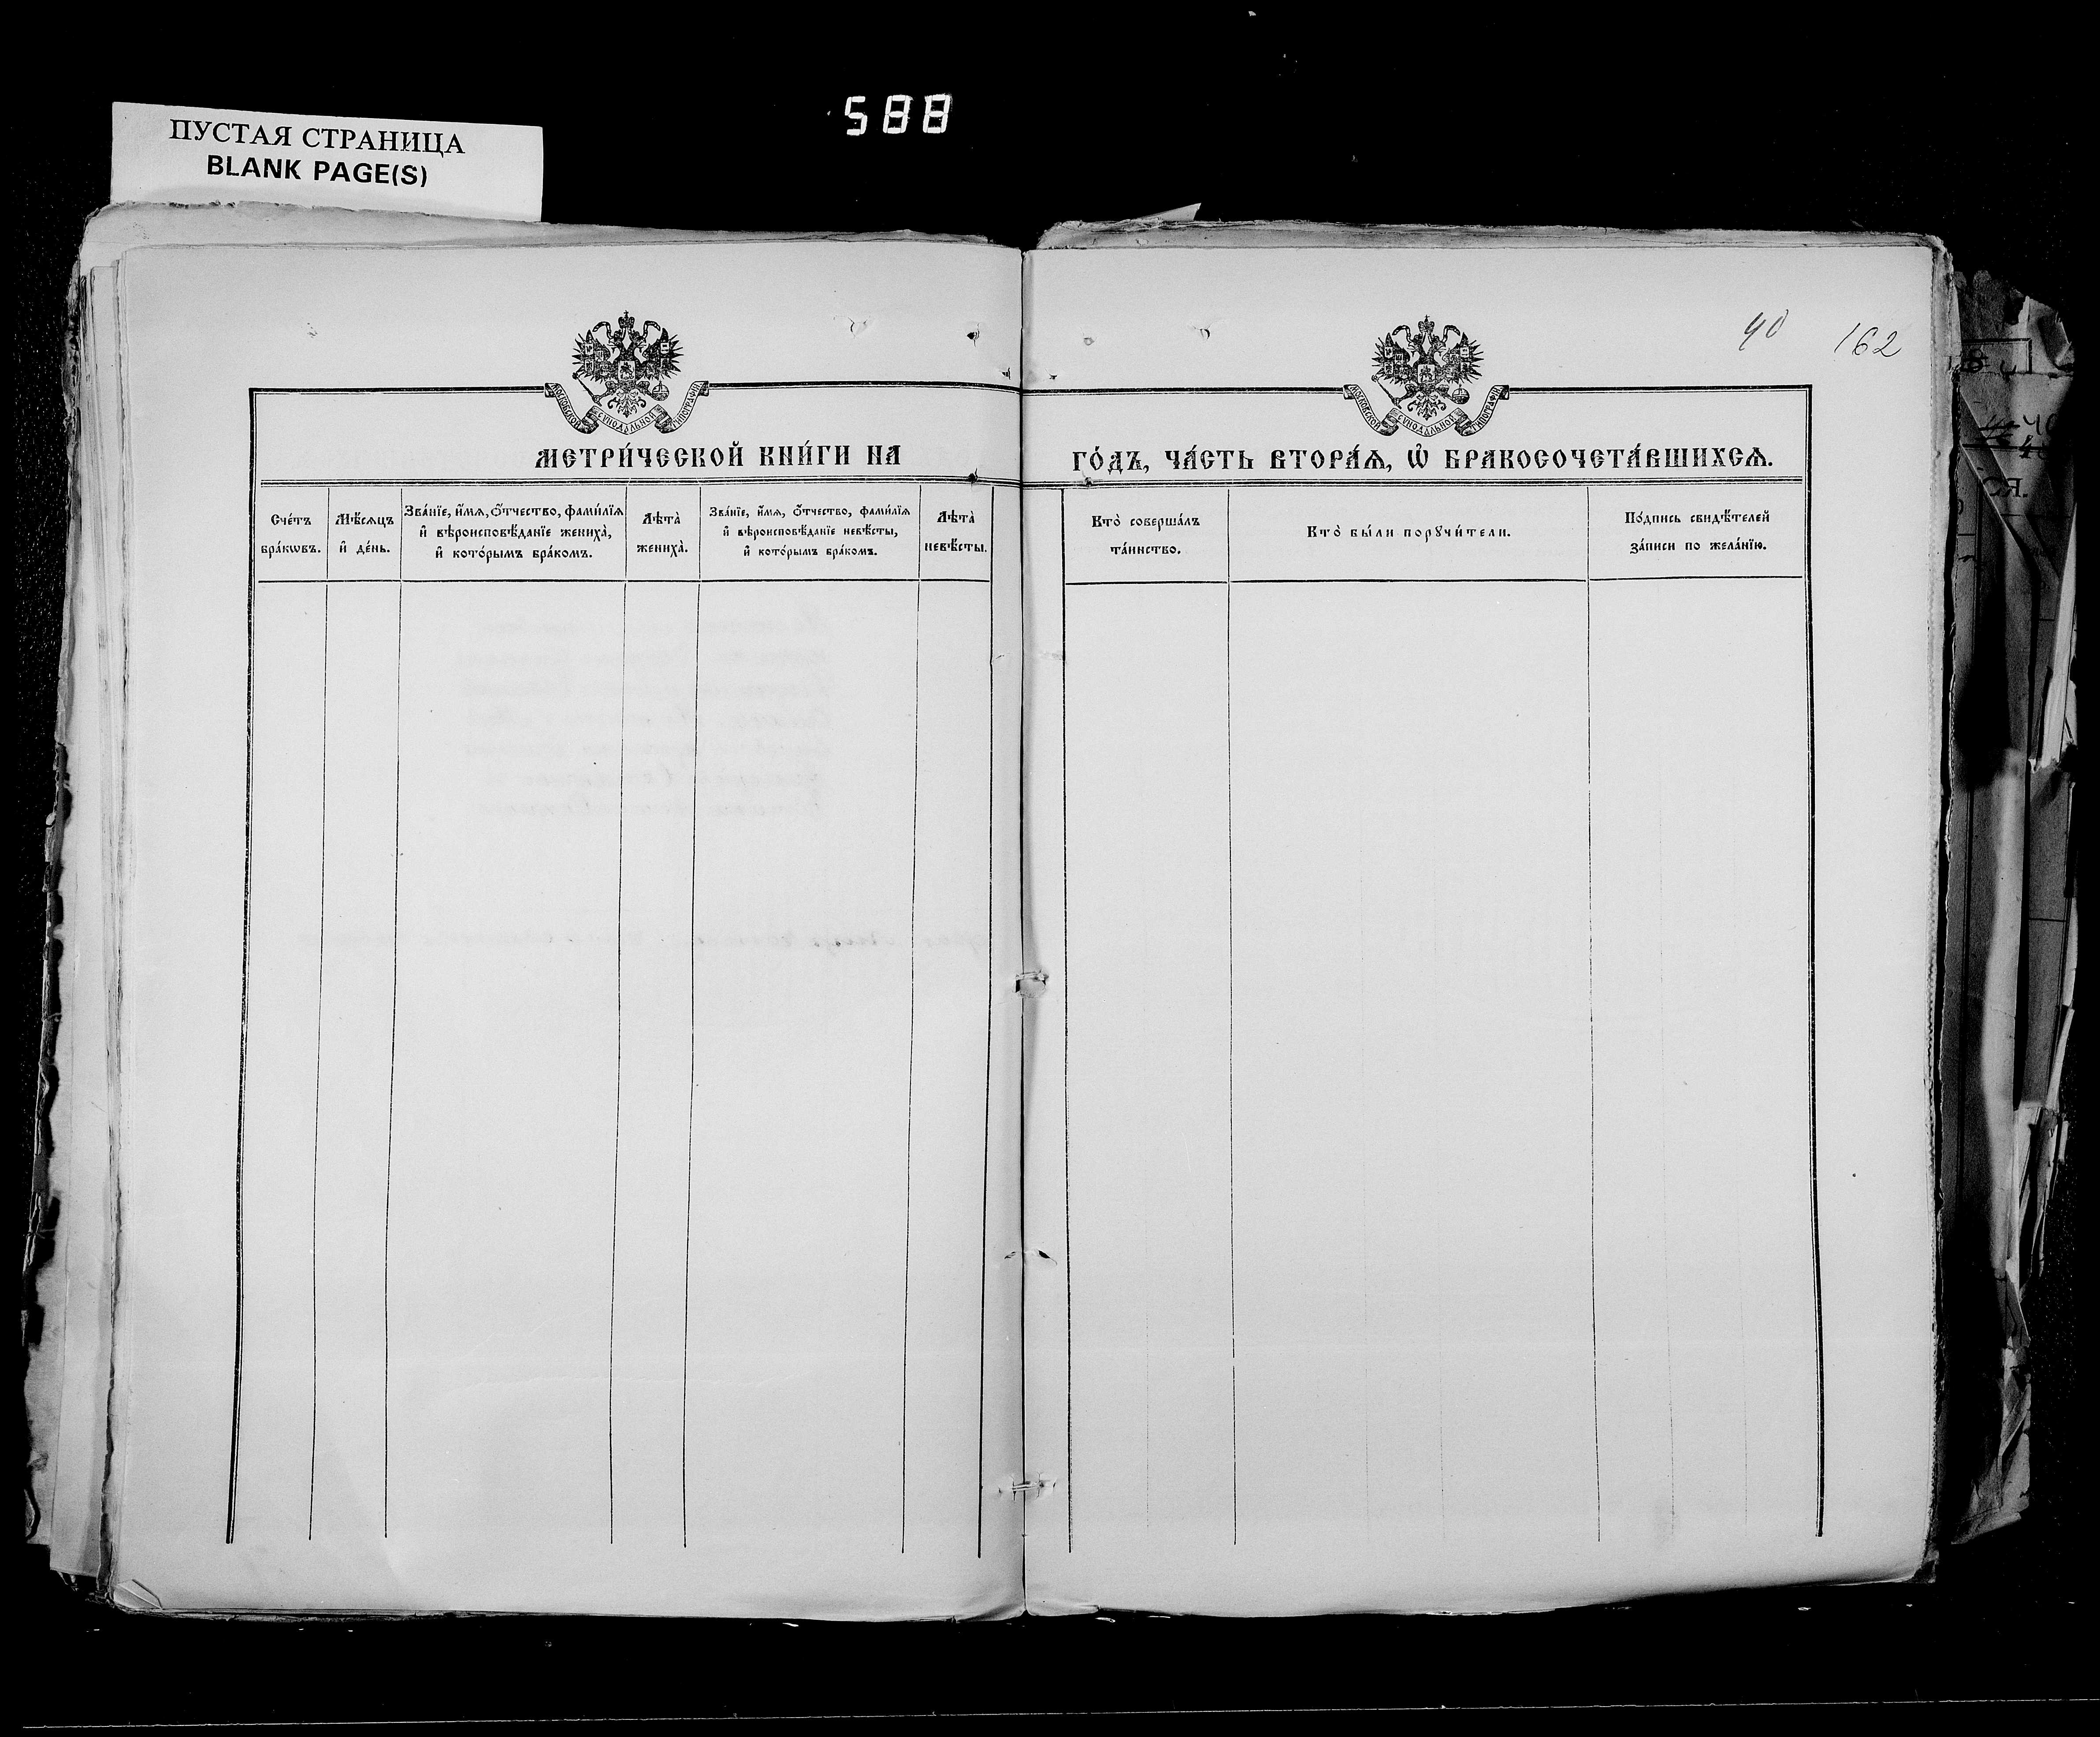 588
ПУСТАЯ СТРАНИЦА
BLANK PAGE(S)
40 162
МОСКОВСКОЙ СѴНОДАЛЬНОЙ ТИПОГРАФІИ
МОСКОВСКОЙ СѴНОДАЛЬНОЙ ТИПОГРАФІИ
МЕТРИ́ЧЕСКОЙ КНИ́ГИ НА
ГО́ДЪ, ЧА́СТЬ ВТОРА́Ѧ, Ѡ҆ БРАКОСОЧЕТА́ВШИХСѦ.
Сче́тъ
бра́кѡвъ.
Мѣ́сѧцъ
и҆ де́нь.
Зва́нїе, и҆́мѧ, ѻ҆́тчество, фами́лїѧ
и҆ вѣроисповѣ́данїе жениха̀,
и҆ кото́рымъ бра́комъ.
Лѣта̀
жениха̀.
Зва́нїе, и҆́мѧ, ѻ҆́тчество, фами́лїѧ
и҆ вѣроисповѣ́данїе невѣ́сты,
и҆ кото́рымъ бра́комъ.
Лѣта̀
невѣ́сты.
Кто̀ соверша́лъ
та́инство.
Кто̀ бы́ли порꙋчи́тели.
По́дпись свидѣ́телей
за́писи по жела́нїю.